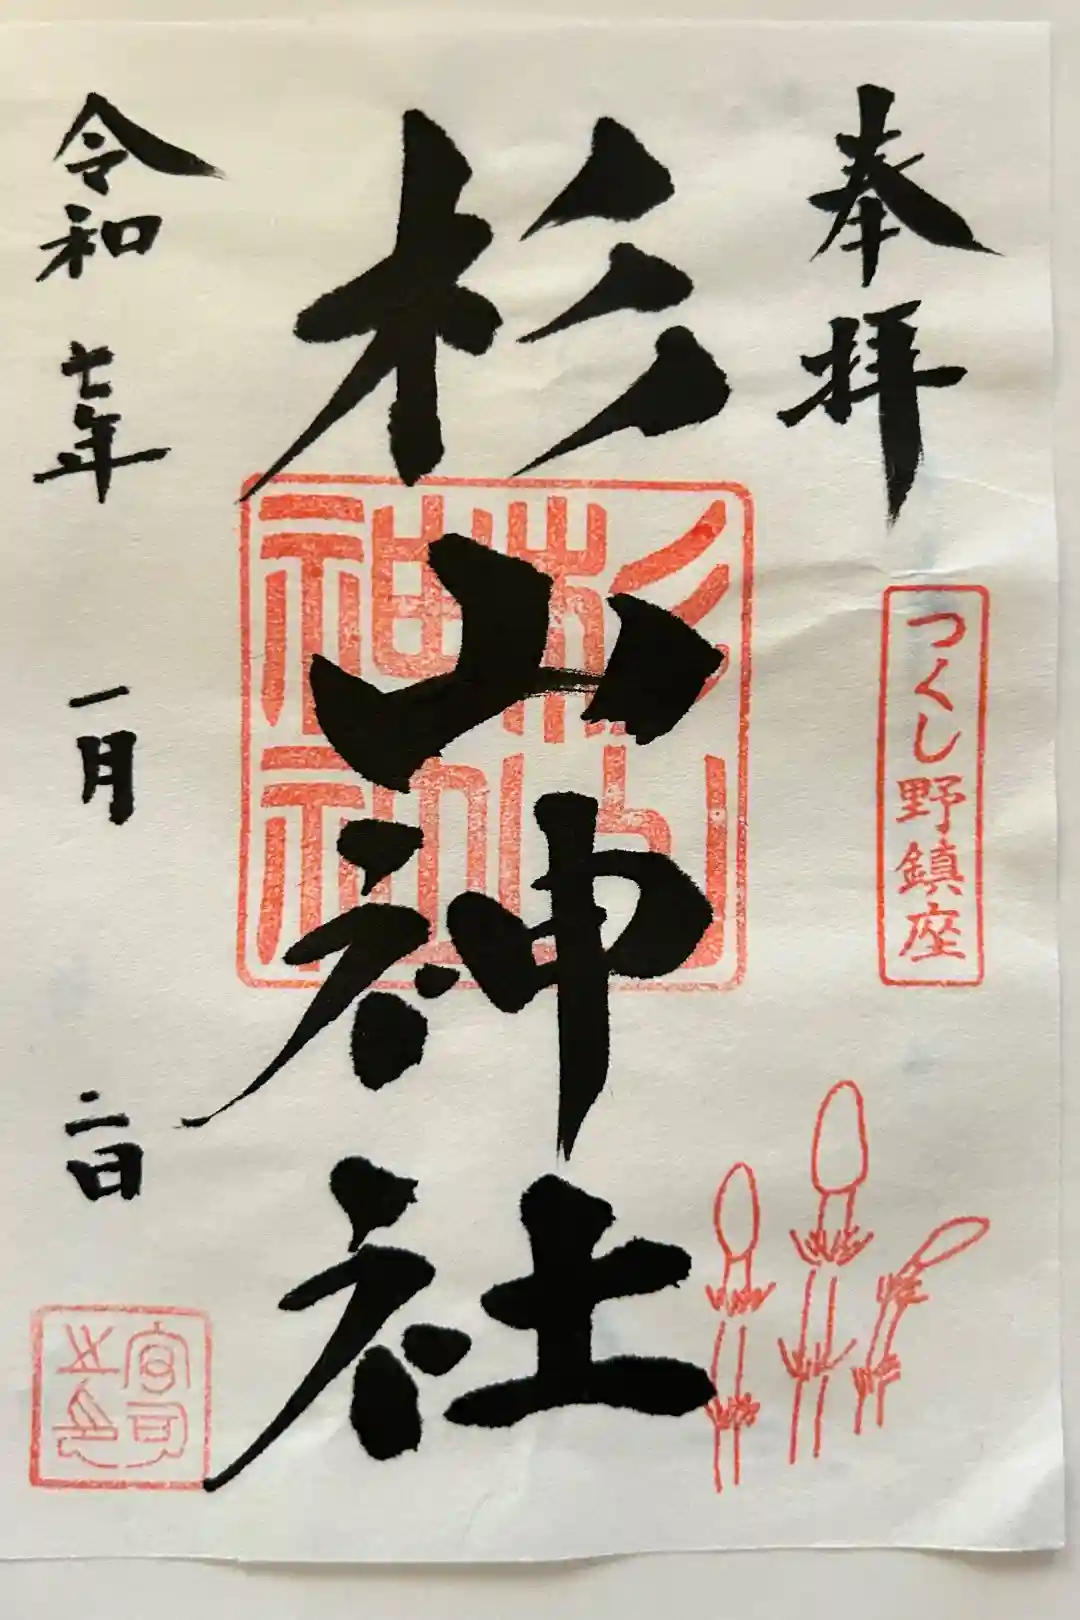 奉拝
つくし野鎮座
杉山神社
杉山
神社
令和七年一月二日
宮司之印